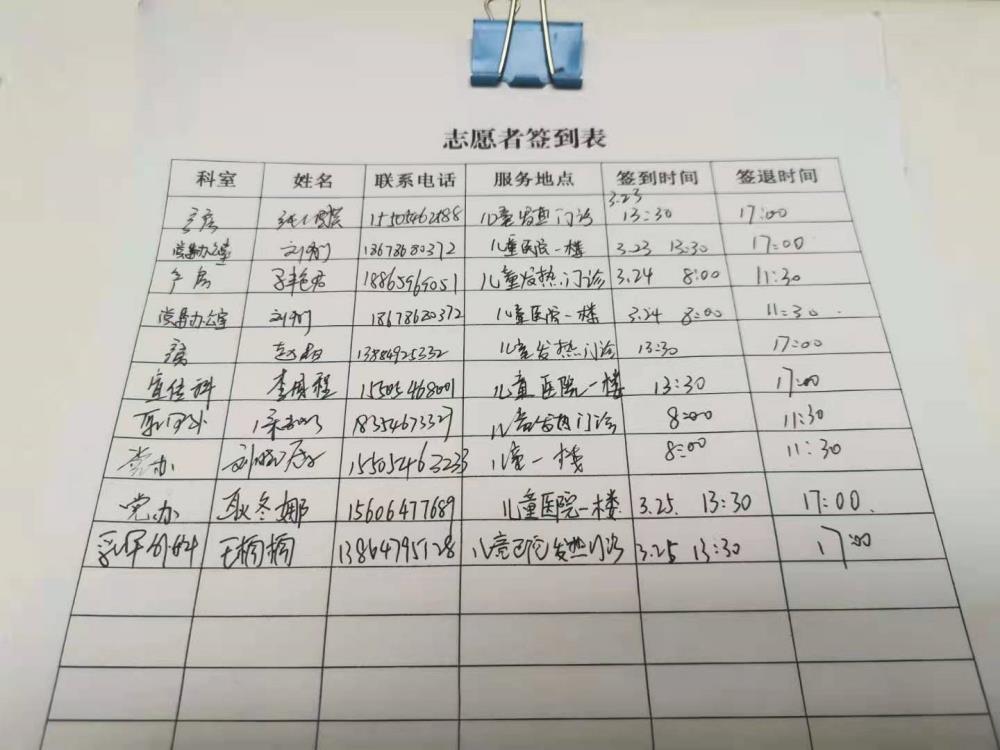 志愿者签到表
科室 姓名 联系电话 服务地点 签到时间 签退时间
产房 15505462888 儿童发热门诊 3.23 13:30 17:00
党员办公室 18678680372 儿童医院一楼 3.23 13:30 17:00
产房 孟艳君 18865969051 儿童发热门诊 3.24 8:00 11:30
党员办公室 18678620372 儿童医院一楼 3.24 8:00 11:30
13884925332 儿童发热门诊 13:30 17:00
宣传科 15505468001 儿童医院一楼 13:30 17:00
乳甲外 18354673327 儿童发热门诊 8:00 11:30
党办 15505463233 儿童一楼 8:00 11:30
党办 耿冬娜 15606477689 儿童医院一楼 3.25. 13:30 17:00.
乳甲外科 王楠楠 13864795128 儿童医院发热门诊 3.25 13:30 17:00